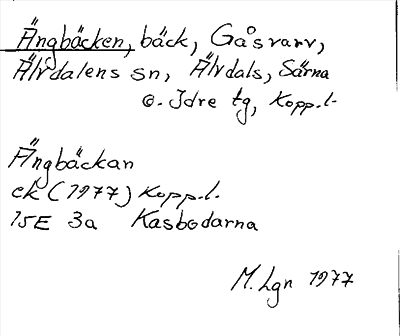 Ängbäcken, bäck, Gåsvarv,
Älvdalens sn, Älvdals, Särna
o. Idre tg, Kopp.l.
Ängbäckan
ek (1977) Kopp.l.
15E 3a Kasbodarna
M. Lgn 1977